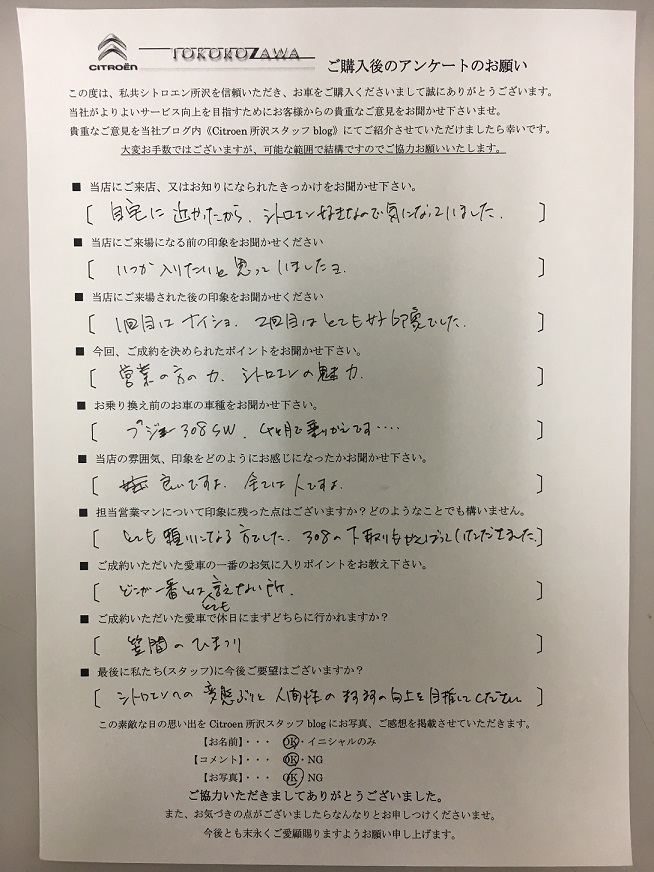 CITROËN TOKOROZAWA ご購入後のアンケートのお願い
この度は、私共シトロエン所沢を信頼いただき、お車をご購入くださいまして誠にありがとうございます。
当社がよりよいサービス向上を目指すためにお客様からの貴重なご意見をお聞かせ下さいませ。
貴重なご意見を当社ブログ内《Citroen 所沢スタッフ blog》にてご紹介させていただけましたら幸いです。
大変お手数ではございますが、可能な範囲で結構ですのでご協力お願いいたします。
■ 当店にご来店、又はお知りになられたきっかけをお聞かせ下さい。
[ 自宅に近かったから、シトロエン好きなので気になっていました. ]
■ 当店にご来場になる前の印象をお聞かせください
[ いつか入りたいと思っていましたヨ. ]
■ 当店にご来場された後の印象をお聞かせください
[ 1回目はナイショ. 2回目はとても好印象でした. ]
■ 今回、ご成約を決められたポイントをお聞かせ下さい。
[ 営業の方の力. シトロエンの魅力. ]
■ お乗り換え前のお車の車種をお聞かせ下さい。
[ プジョー 308SW. 4ヶ月で乗りかえです‥‥ ]
■ 当店の雰囲気、印象をどのようにお感じになったかお聞かせ下さい。
[ 良いですよ. 全ては人ですよ. ]
■ 担当営業マンについて印象に残った点はございますか？どのようなことでも構いません。
[ とても頼りになる方でした. 308の下取りもがんばっていただきました. ]
■ ご成約いただいた愛車の一番のお気に入りポイントをお教え下さい。
[ どこが一番とはとても言えない所. ]
■ ご成約いただいた愛車で休日にまずどちらに行かれますか？
[ 笠間のひまつり ]
■ 最後に私たち(スタッフ)に今後ご要望はございますか？
[ シトロエンへの変態ぶりと人間性の向上を目指してください ]
この素敵な日の思い出を Citroen 所沢スタッフ blog にお写真、ご感想を掲載させていただきます。
【お名前】・・・ OK・イニシャルのみ
【コメント】・・・ OK・NG
【お写真】・・・ OK・NG
ご協力いただきましてありがとうございました。
また、お気づきの点がございましたらなんなりとお申しつけくださいませ。
今後とも末永くご愛顧賜りますようお願い申し上げます。